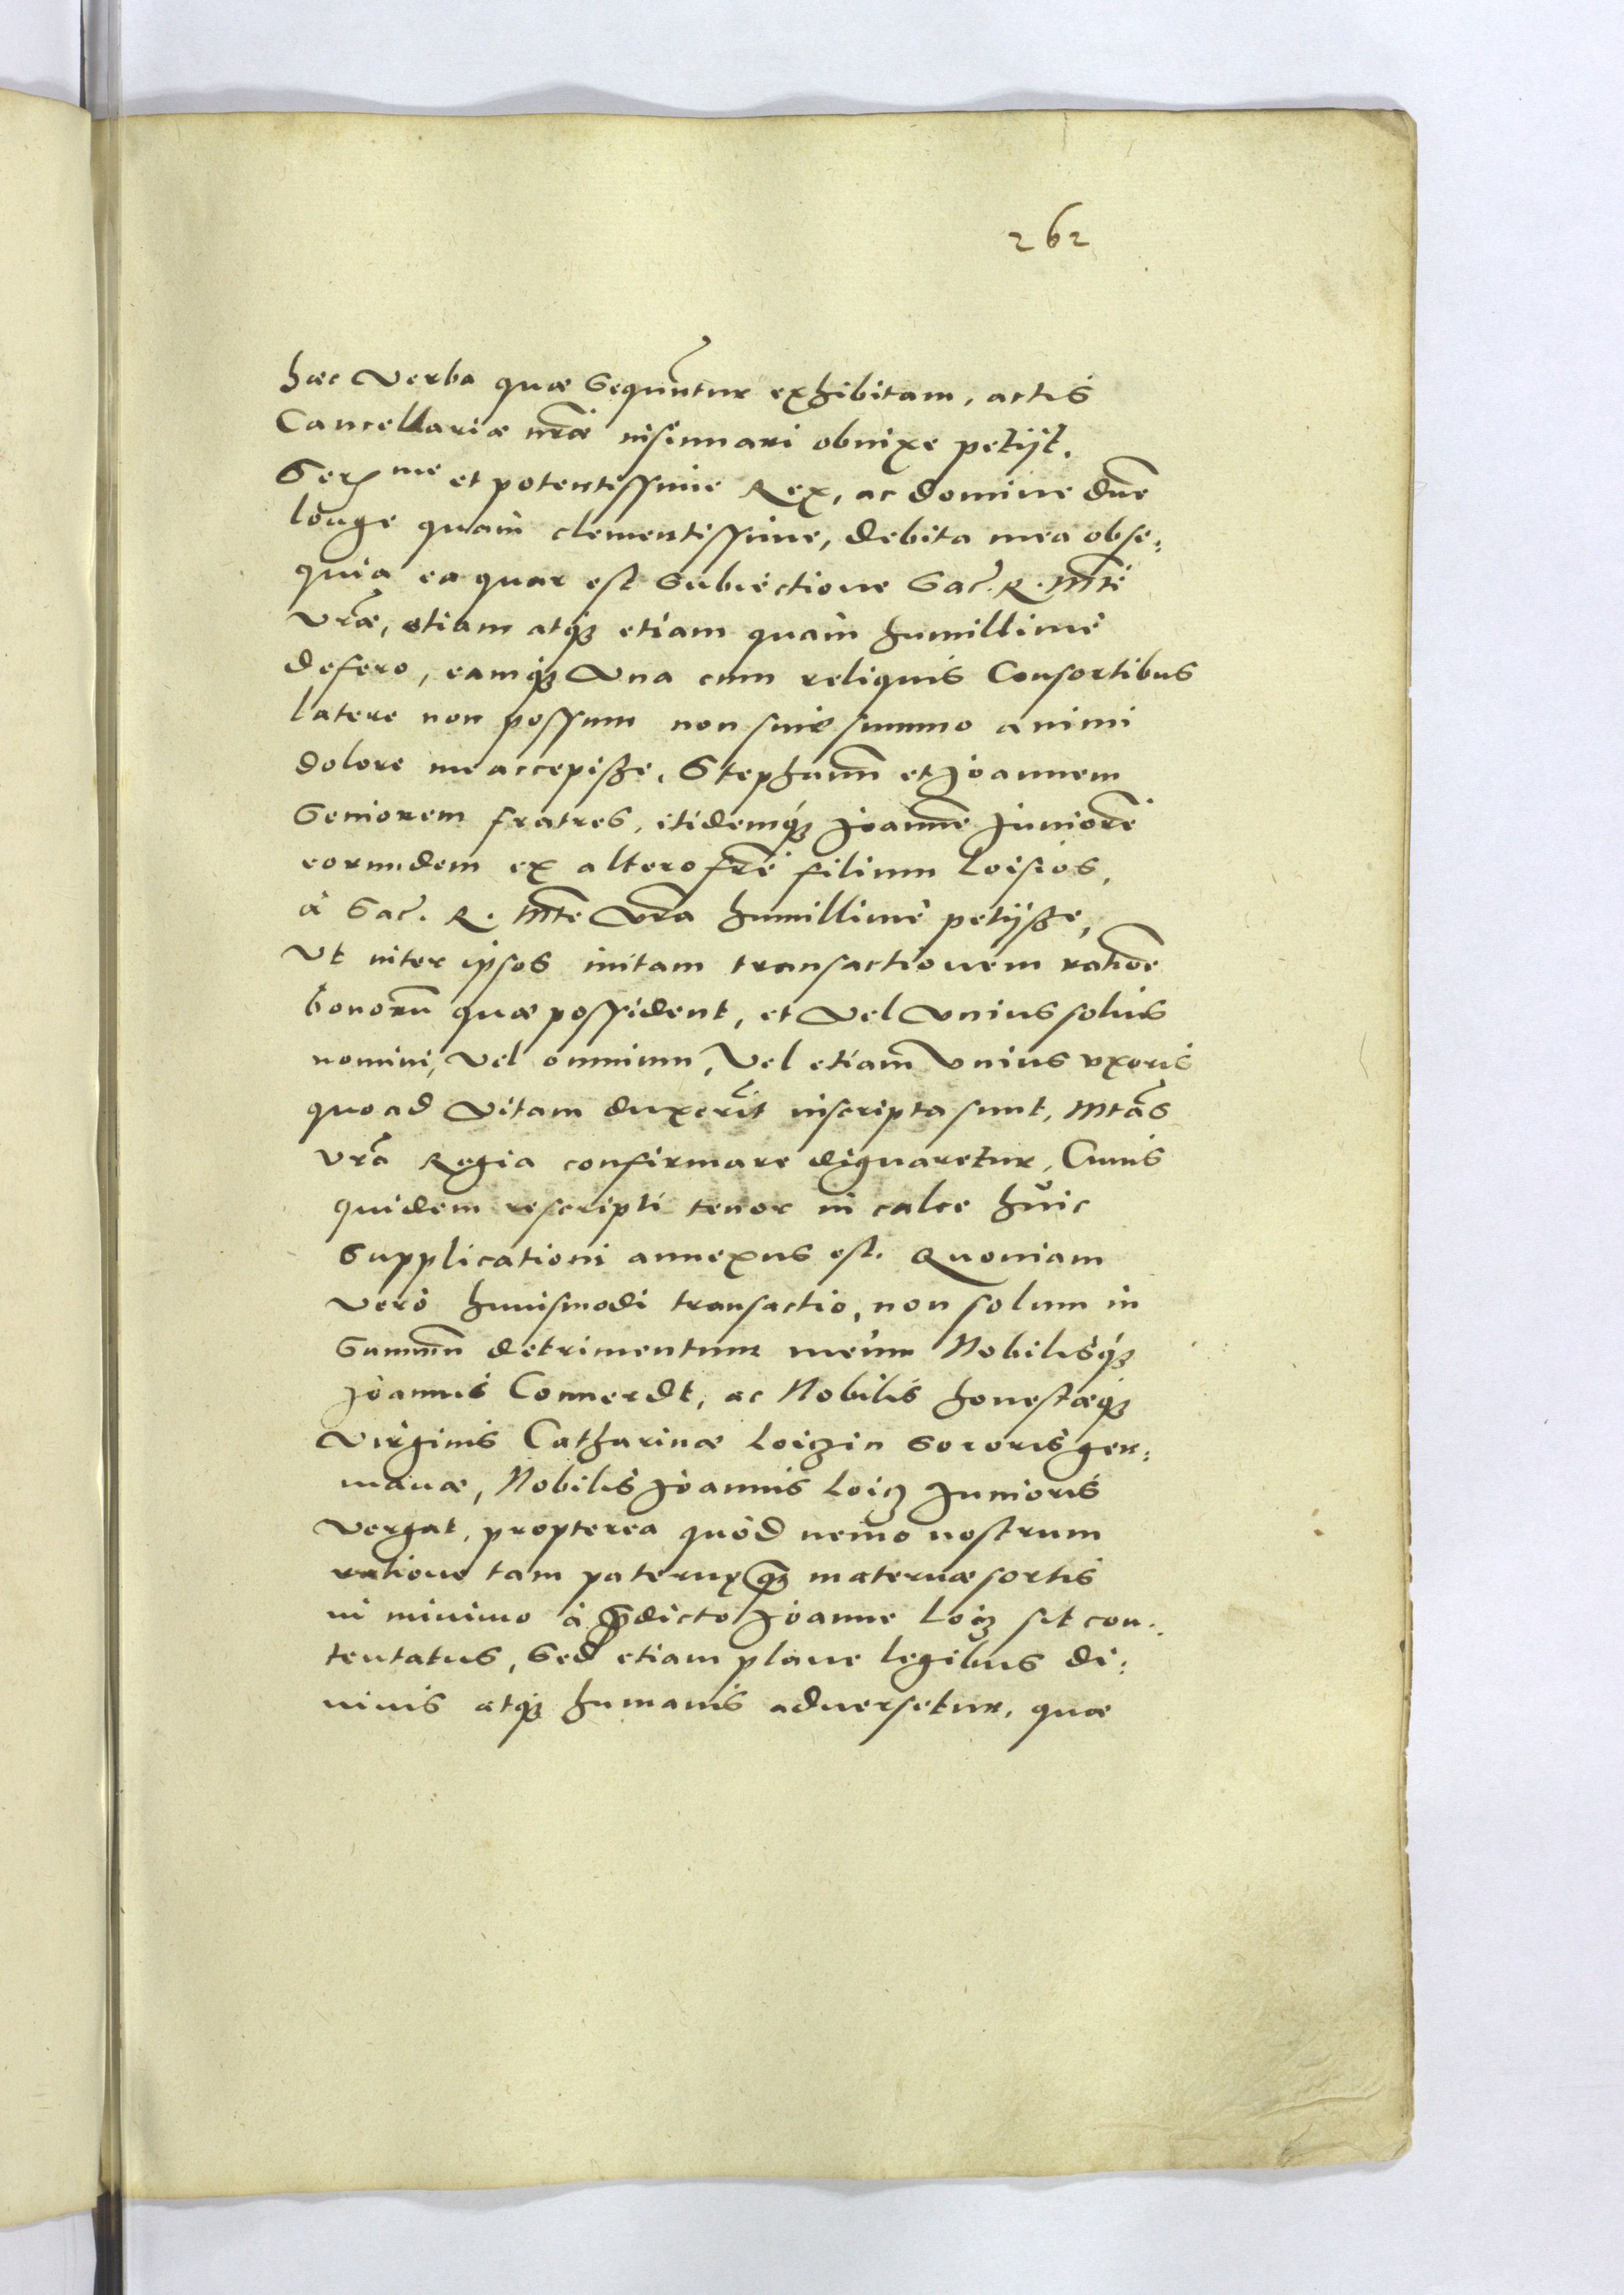 262
hæc verba quæ sequuntur exhibitam, actis
Cancellariæ nrãe insinuari obnixe petijt.
Ser me et potentissime Rex, ac domine dñe
longe quam clementissime, debita mea obse:
quia ea quae est subiectione Sac. R. Mti
vrãe, etiam atq3 etiam quam humillime
defero, eamq3 una cum reliquis Consortibus
latere non possum non sine summo animi
dolore me accepisse, Stephanũ et Joannem
Seniorem fratres, itidemq3 Joannẽ Juniorẽ
eorundem ex altero frẽ filium Loisios,
à Sac. R. Mte vrã humillime petijsse,
Ut inter ipsos initam transactionem rationẽ
bonorũ quæ possident, et vel unius solius
nomini, vel omnium, Vel etiam Unius uxoris
quoad vitam duxerĩt inscripta sunt, Mtãs
vrã Regia confirmare dignaretur, Cuius
quidem rescripti tenor in calce huic
supplicationi annexus est. Quoniam
vero huiusmodi transactio, non solum in
summũ detrimentum meum Nobilisq3
Joannis Connerdt, ac Nobilis honestæq3
Virginis Catharinæ Loiczin sororis ger:
manæ, Nobilis Joannis Loicz Junioris
vergat, propterea quòd nemo nostrum
ratione tam paternæ q3 maternæ sortis
in minimo à p̃dicto Joanne Loicz sit con:
tentatus, sed etiam plane legibus di:
vinis atq3 humanis adversetur, quæ